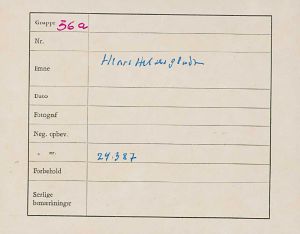 Gruppe 36a
Nr.
Emne
Dato
Fotograf
Neg. opbev.
" nr. 24.387
Forbehold
Særlige
bemærkninger